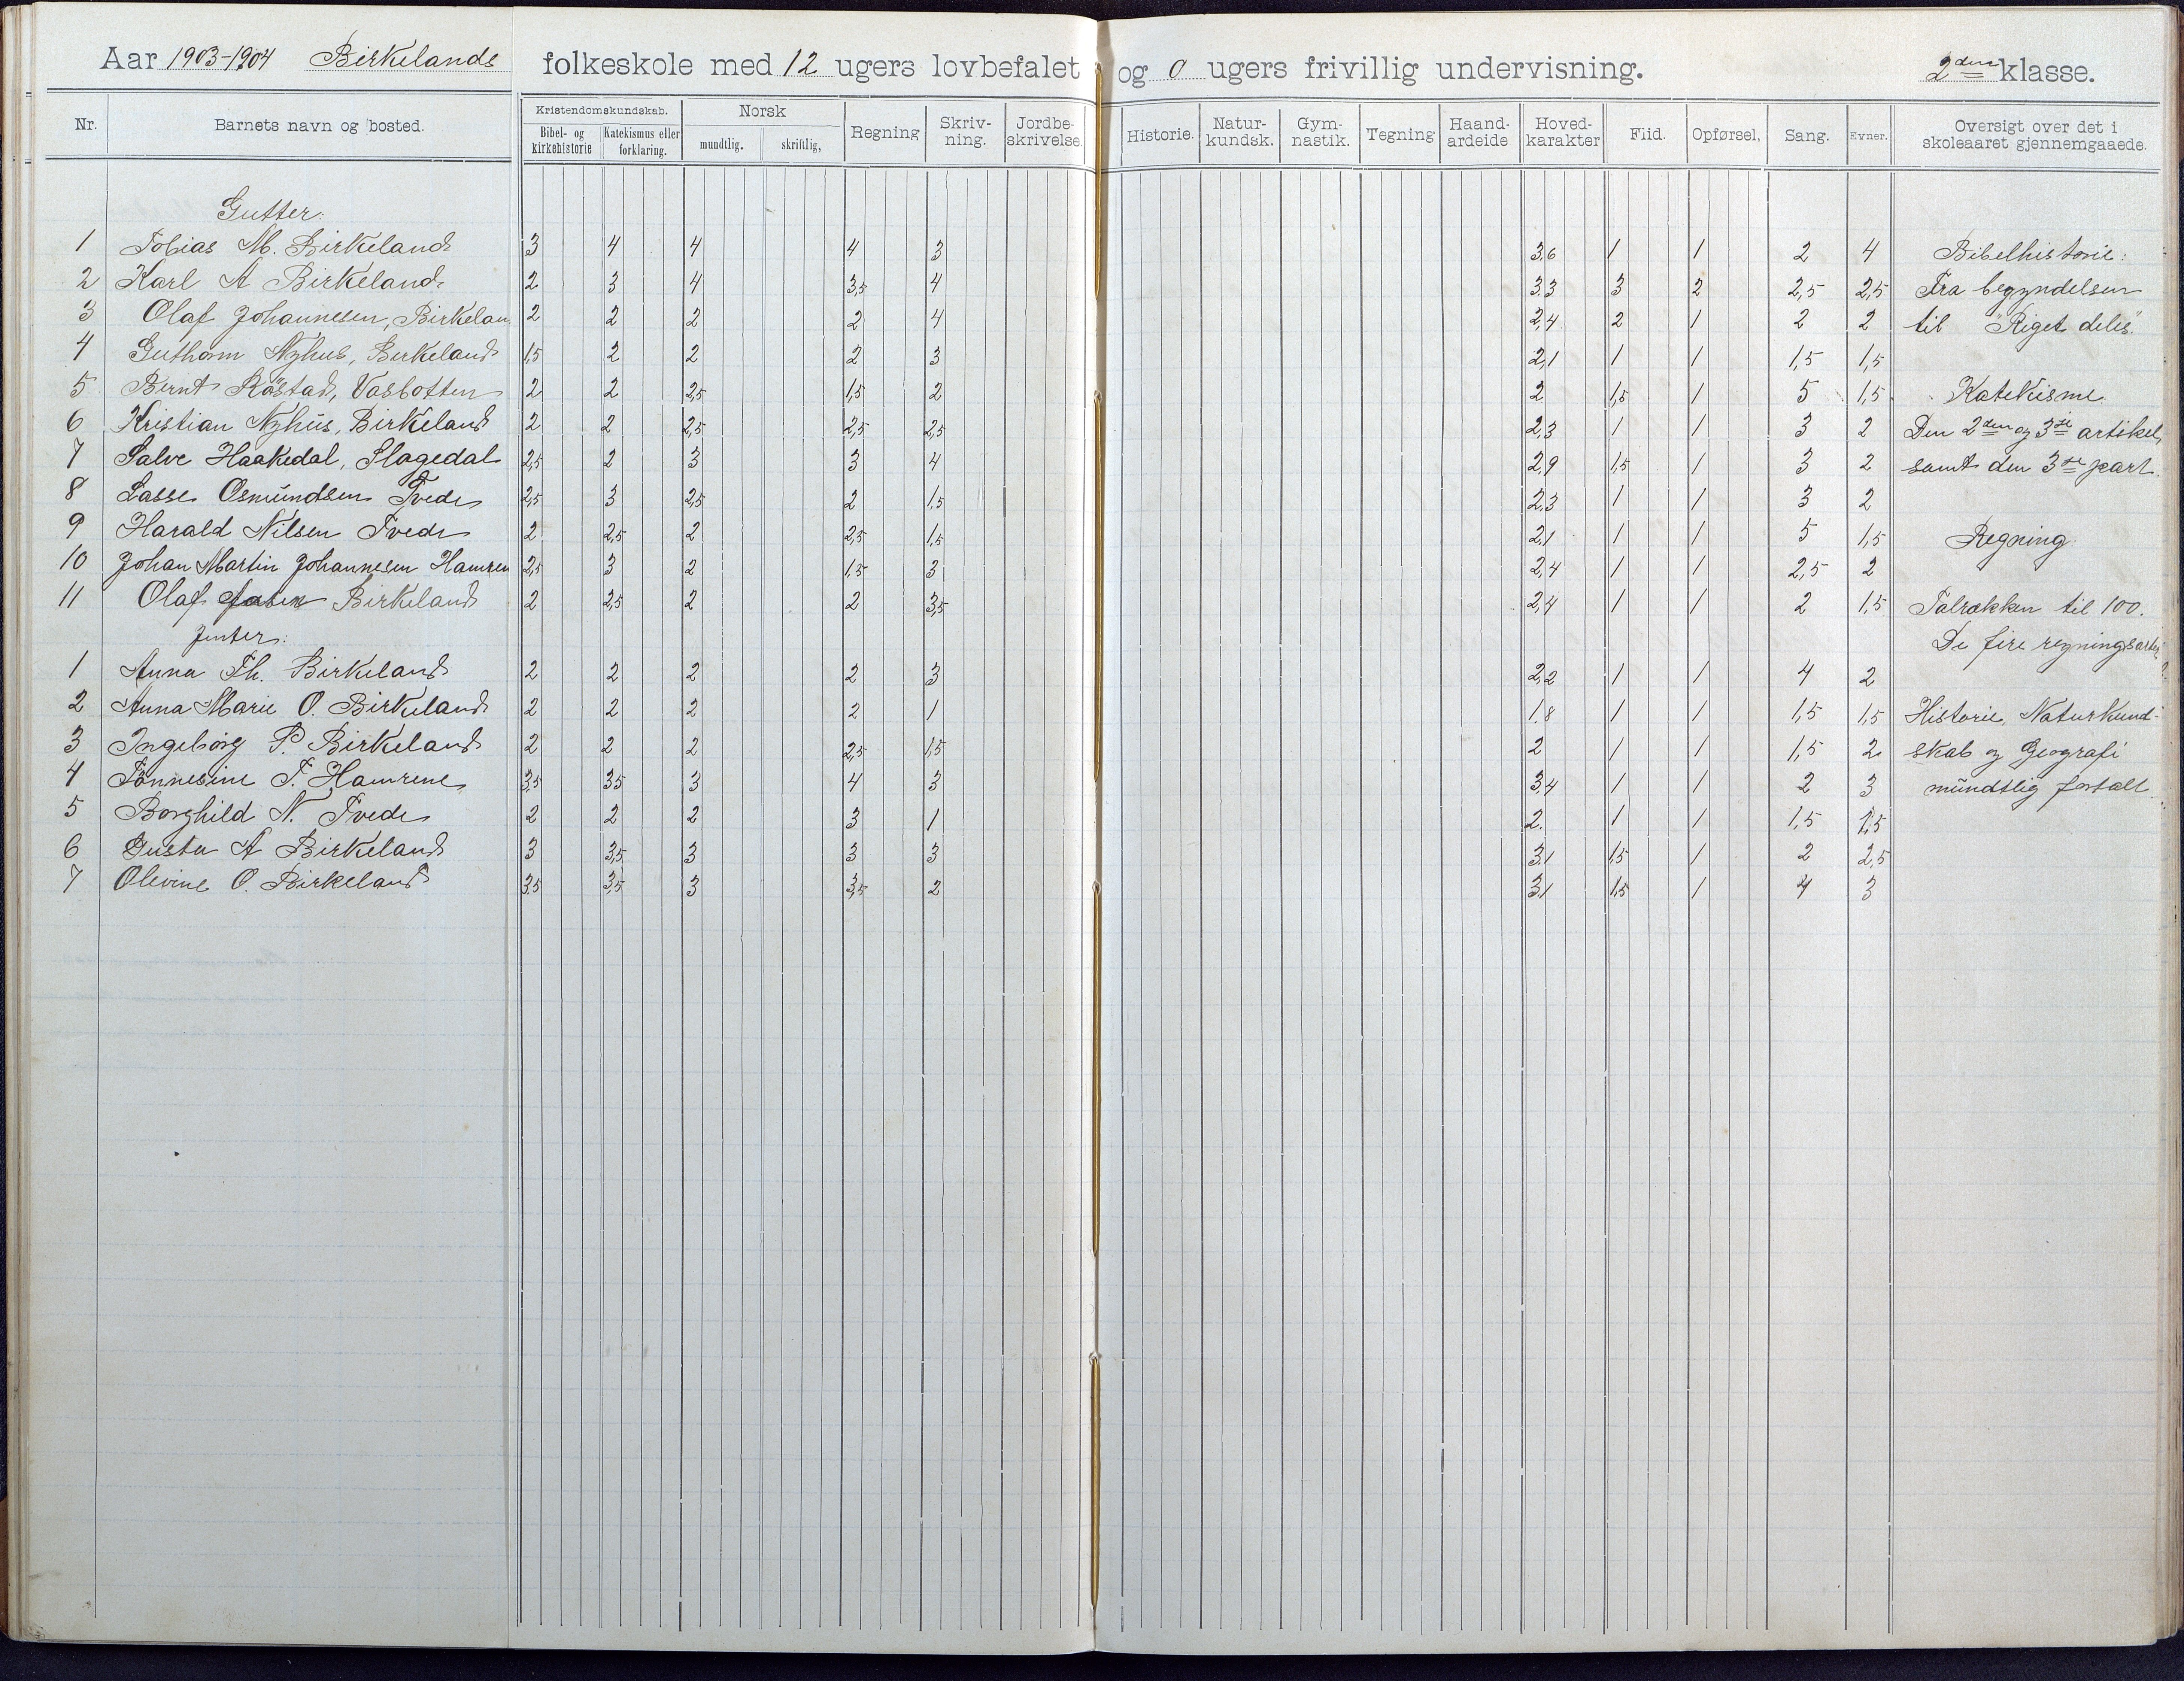 Aar 1903-1904 Birkelands folkeskole med 12 ugers lovbefalet og 0 ugers frivillig undervisning. 2den klasse.
Nr. Barnets navn og bosted. Kristendomskundskab. Bibel- og kirkehistorie Katekismus eller forklaring. Norsk mundtlig. skriftlig, Regning Skriv- ning. Jordbe- skrivelse. Historie. Natur- kundsk. Gym- nastik. Tegning Haand- ardeide Hoved- karakter Flid. Opførsel, Sang. Evner. Oversigt over det i skoleaaret gjennemgaaede.
Gutter:
1 Tobias M. Birkeland 3 4 4 4 3 3,6 1 1 2 4 Bibelhistorie:
2 Karl A Birkeland 2 3 4 3,5 4 3,3 3 2 2,5 2,5 Fra begyndelsen
3 Olaf Johannesen, Birkelan 2 2 2 2 4 2,4 2 1 2 2 til "Riget deles"
4 Guthorm Nyhus, Birkeland 1,5 2 2 2 3 2,1 1 1 1,5 1,5
5 Bernt Røstad, Vasbotten 2 2 2,5 1,5 2 2 1,5 1 5 1,5 Katekisme.
6 Kristian Nyhus, Birkeland 2 2 2,5 2,5 2,5 2,3 1 1 3 2 Den 2den og 3die artikel,
7 Salve Haakedal, Slagedal 2,5 2 3 3 4 2,9 1,5 1 3 2 samt den 3die part.
8 Lasse Osmundsen Tvede 2,5 3 2,5 2 1,5 2,3 1 1 3 2
9 Harald Nilsen Tvede 2 2,5 2 2,5 1,5 2,1 1 1 5 1,5 Regning.
10 Johan Martin Johannesen Hamren 2,5 3 2 1,5 3 2,4 1 1 2,5 2
11 Olaf Birkeland 2 2,5 2 2 3,5 2,4 1 1 2 1,5 Talrækken til 100.
Jenter: De fire regningsarter
1 Anna Th. Birkeland 2 2 2 2 3 2,2 1 1 4 2
2 Anna Marie O. Birkeland 2 2 2 2 1 1,8 1 1 1,5 1,5 Historie, Naturkund-
3 Ingeborg P. Birkeland 2 2 2 2,5 1,5 2 1 1 1,5 2 skab og Geografi
4 Tønnesine T. Hamrene 3,5 3,5 3 4 3 3,4 1 1 2 3 mundtlig fortalt
5 Borghild N. Tvede 2 2 2 3 1 2. 1 1 1,5 1,5
6 Gusta A Birkeland 3 3,5 3 3 3 3,1 1,5 1 2 2,5
7 Olevine O. Birkeland 3,5 3,5 3 3,5 2 3,1 1,5 1 4 3